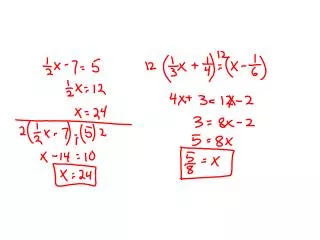 ½x - 7 = 5
½x = 12
x = 24
2(½x - 7) = (5)2
x - 14 = 10
x = 24
12(⅓x + ¼) = 12(x - 1/6)
4x + 3 = 12x - 2
3 = 8x - 2
5 = 8x
5/8 = x